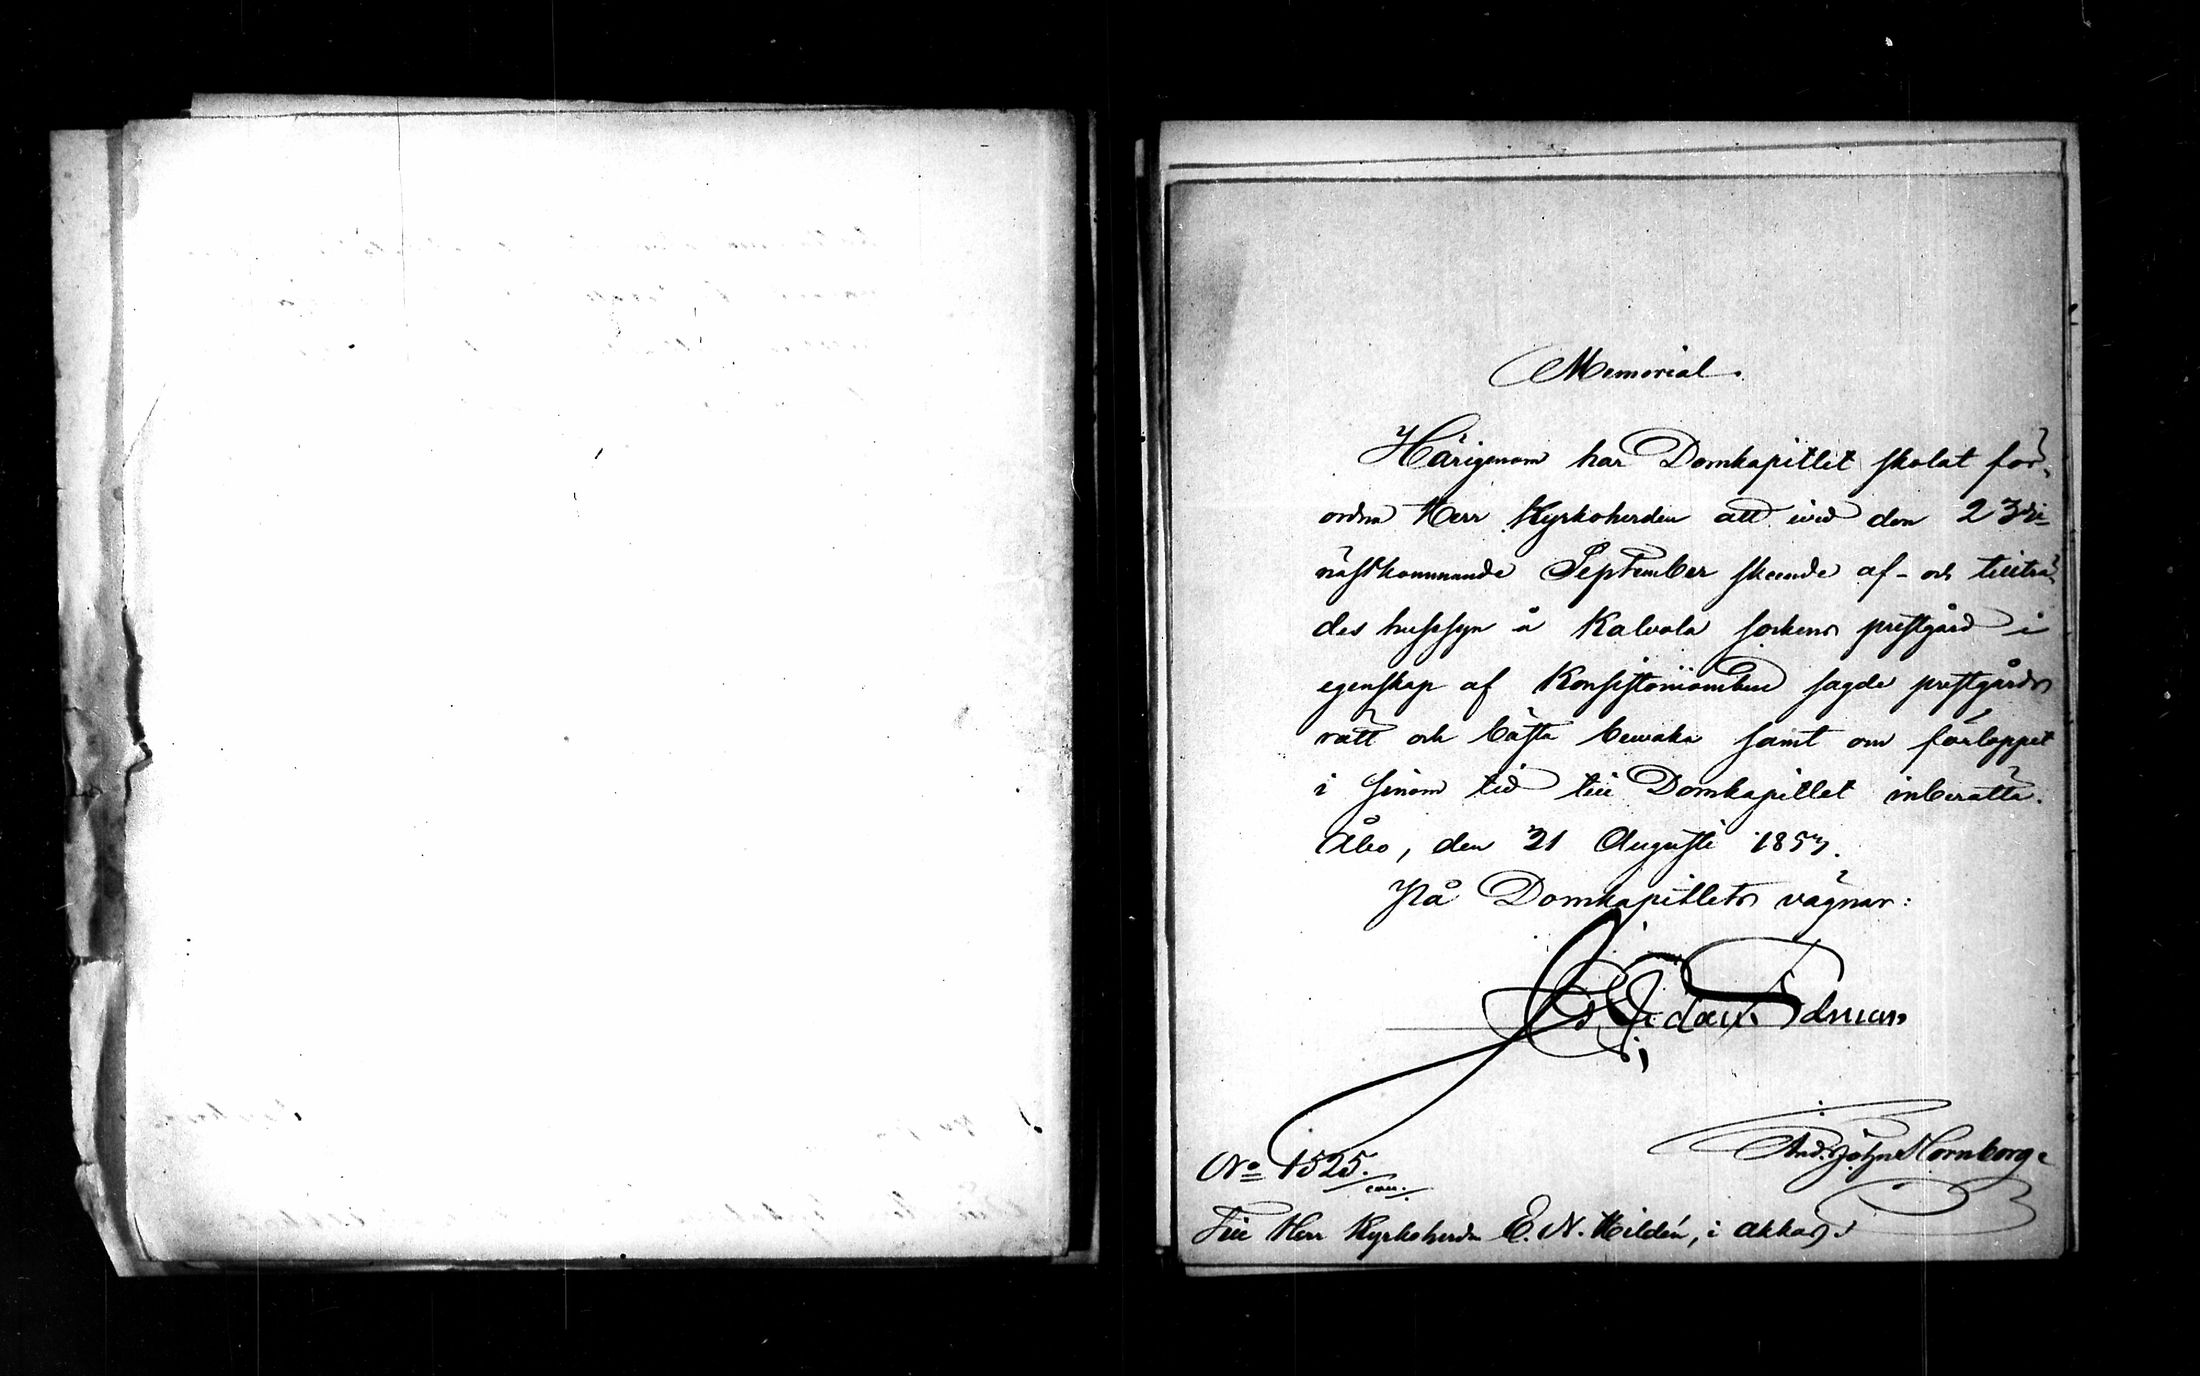 Memorial.
Härigenom har Domkapitlet skolat för-
ordna Herr Kyrkoherden att vid den 23dje
nästkommande September skeende af- och tillträ-
des hussyn å Kalvola sockens prestgård i
egenskap af Konsistoriiombud sagde prestgårds
rätt och bästa bevaka samt om förloppet
i sinom tid till Domkapitlet inberätta.
Åbo, den 21 Augusti 1857.
På Domkapitlets vägnar:
And. John Hornborg.
No 1525.
Till Herr Kyrkoherden E. N. Hildén, i Akkas.